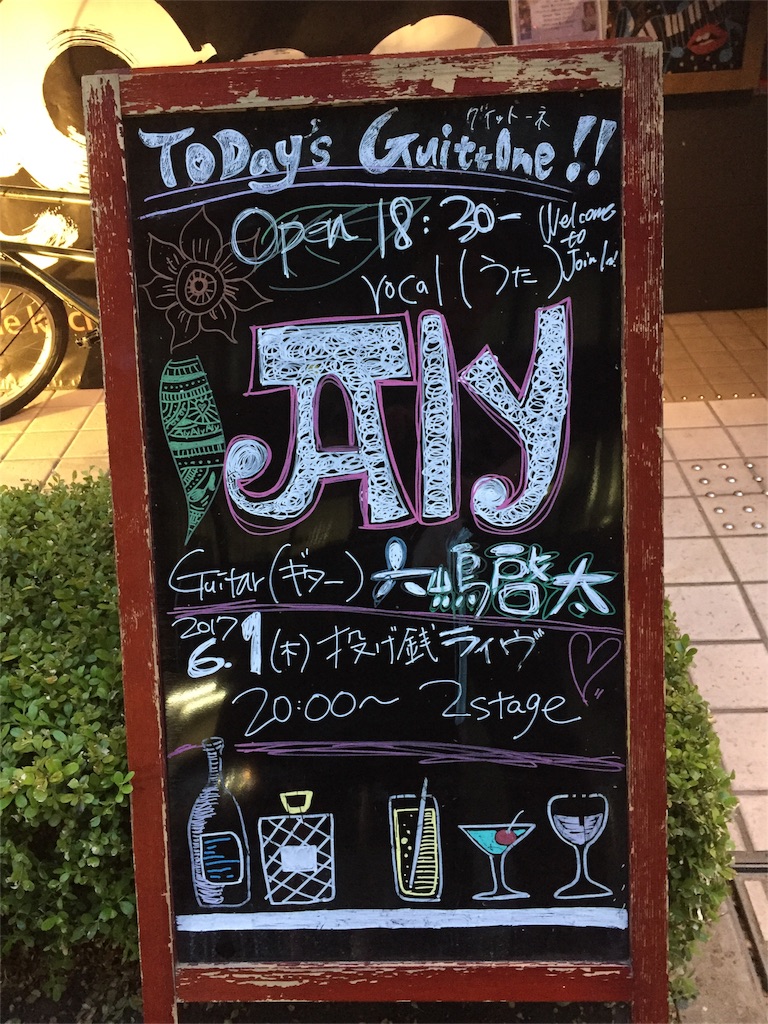 グイットーネ
ToDay's Guit+One!!
Open 18:30-
Welcome to Join Us!
Vocal (うた)
Aly
Guitar (ギター) 六嶋啓太
2017
6.1 (木) 投げ銭ライヴ
20:00〜 2stage